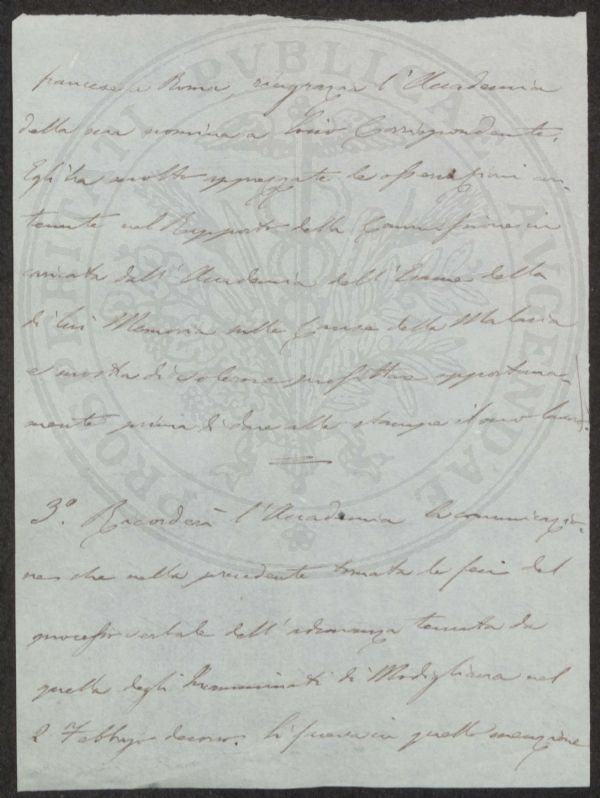 francese a Roma, ringrazia l'Accademia
della sua nomina a Socio Corrispondente.
Egli ha molto apprezzate le osservazioni con-
tenute nel Rapporto della Commissione in
caricata dall'Accademia dell'Esame della
di lui Memoria sulle Cause della Malaria
e mostra di volerne profittare opportuna-
mente prima di dare alle stampe il suo lavoro.
3º. Ricorderà l'Accademia la comunicazio-
ne che nella precedente tornata le feci del
processo verbale dell'adunanza tenuta da
quella degli Incamminati di Modigliana nel
2 Febbrajo decorso. Si faceva in quello menzione
PROSPERITATI PVBLICAE AVGENDAE